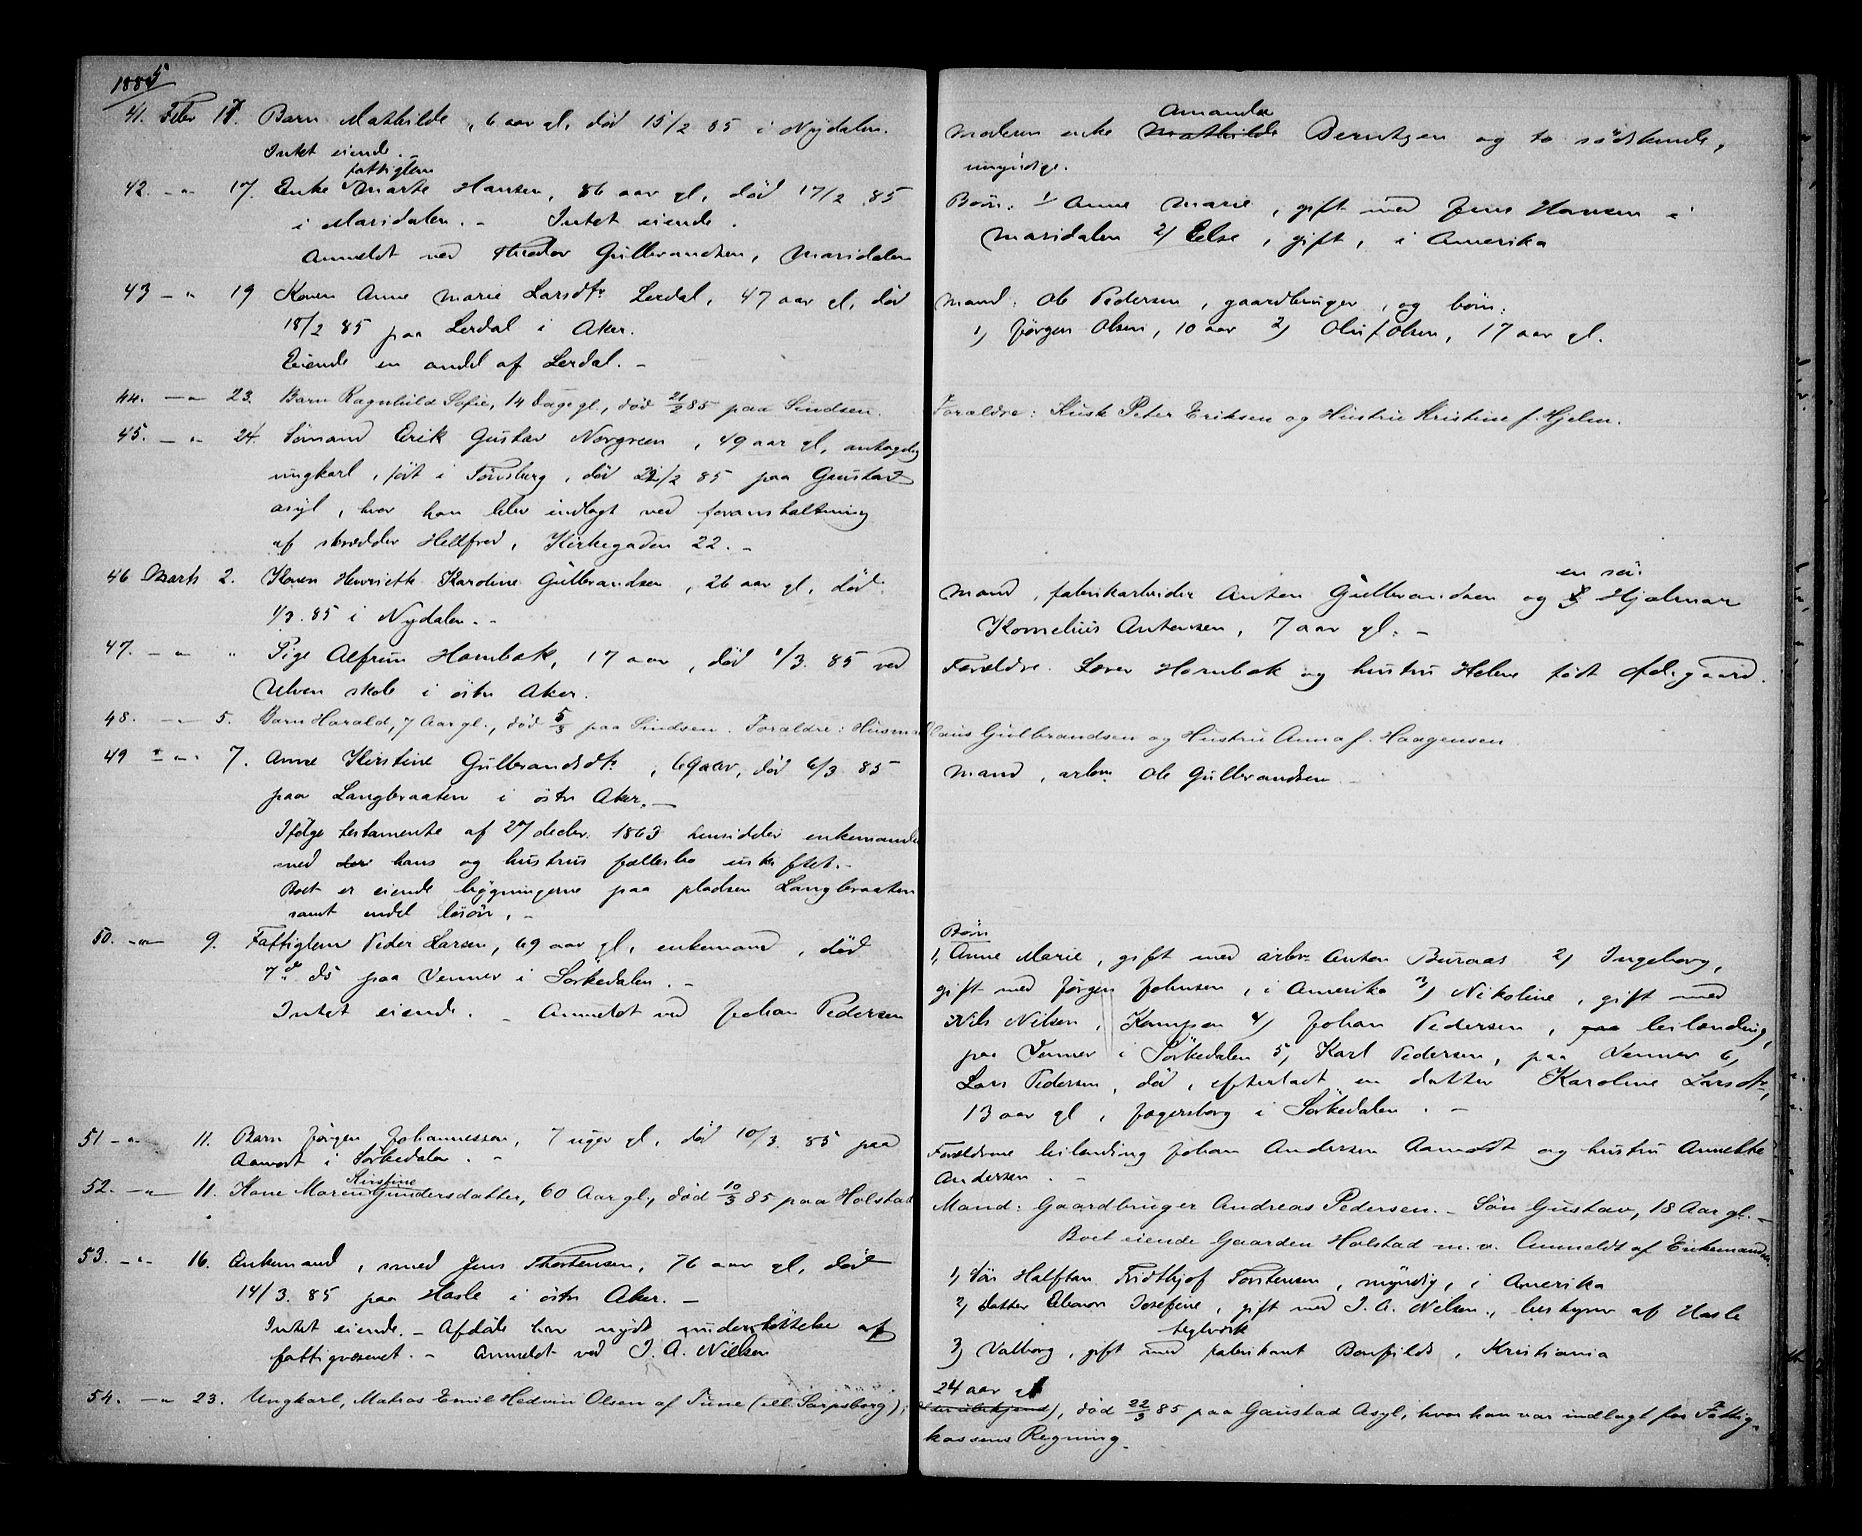 1885
41. Febr 17. Barn Mathilde, 6 aar gl, død 15/2 85 i Nydalen.
Intet eiende. –
fattiglem
42. – " 17. Enke Marte Hansen, 86 aar gl, død 17/2 85
i Maridalen. – Intet eiende.
Anmeldt ved Theodor Gulbrandsen, Maridalen
43 – " 19 Konen Anne Marie Larsdtr Lerdal, 47 aar gl, død
18/2 85 paa Lerdal i Aker.
Eiende en andel af Lerdal. –
44. – " 23. Barn Ragnhild Sofie, 14 Dage gl., død 21/2 85 paa Sindsen.
45. – " 24. Sømand Erik Gustav Norgreen, 49 aar gl, antagelig
ungkarl, født i Tønsberg, død 22/2 85 paa Gaustad
asyl, hvor han blev indlagt ved foranstaltning
af skrædder Hellfred, Kirkegaden 22. –
46 Marts 2. Konen Henriette Karoline Gulbrandsen, 26 aar gl, død
1/3. 85 i Nydalen. –
47. – " " Pige Alfrun Hornbæk, 17 aar, død 1/3. 85 ved
Ulven skole i østr Aker.
48. – " 5. Barn Harald, 7 Aar gl., død 5/3 paa Sindsen. Forældre: Husm.
49 – " 7. Anne Kirstine Gulbrandsdtr, 69 aar, død 6/3 85
paa Langbraaten i østr Aker. –
Ifølge testamente af 27 decbr. 1863 hensidder enkemanden
med hans og hustrus fællesbo uskiftet. –
Boet er eiende bygningerne paa pladsen Langbraaten
samt endel løsøre. –
50. – " 9. Fattiglem Peder Larsen, 69 aar gl, enkemand, død
7de ds paa Venner i Sørkedalen. –
Intet eiende. – Anmeldt ved Johan Pedersen
51 – " 11. Barn Jørgen Johannessen, 7 uger gl, død 10/3. 85 paa
i Sørkedalen. –
Kirstine
52. – " 11. Kone Maren Gundersdatter, 60 Aar gl., død 10/3 85 paa Holstad
53. – " 16. Enkemand, smed Jens Thorstensen, 76 aar gl, død
14/3. 85 paa Hasle i østr Aker. –
Intet eiende. – Afdøde har nydt understøttelse af
fattigvæsenet. – Anmeldt ved J. A. Nielsen
54. – " 23. Ungkarl, Matros Emil Hedvin Olsen af Tune (ell. Sarpsborg),
Amanda
Moderen enke Mathilde Berntzen og to sødskende,
umyndige.
Børn: 1/ Anne Marie, gift med Jens Hansen i
Maridalen 2/ Else, gift, i Amerika
Mand: Ole Pedersen, gaardbruger, og børn:
1) Jørgen Olsen, 10 aar 2) Oluf Olsen, 17 aar gl.
Forældre: Kusk Peter Eriksen og Hustru Kristine f. Hjelm.
en søn
Mand, fabrikarbeider Anton Gulbrandsen og Hjalmar
Kornelius Antonsen, 7 aar gl. –
Forældre. Lærer Hornbæk og hustru Helene født Ødegaard.
Claus Gulbrandsen og Hustru Anna f. Haagensen.
Mand, arbm. Ole Gulbrandsen
Børn
1, Anne Marie, gift med arbr. Anton Buraas 2) Ingeborg,
gift med Jørgen Johnsen, i Amerika 3) Nikoline, gift med
Nils Nilsen, Kampen 4) Johan Pedersen, paa leilænding,
paa Venner i Sørkedalen 5, Karl Pedersen, paa Venner 6,
Lars Pedersen, død, efterladt en datter Karoline Larsdtr,
13 aar gl, Fagersborg i Sørkedalen. –
Forældrene leilending Johan Andersen Aamodt og hustru Annette
Andersen. –
Mand: Gaardbruger Andreas Pedersen. – Søn Gustav, 18 Aar gl. –
Boet eiende Gaarden Holstad m.v. Anmeldt af Enkemanden.
1, Søn Halftan Fridthjof Torstensen, myndig, i Amerika
2, datter Elenore Josefine, gift med J. A. Nilsen, bestyrer af Hasle
teglverk
3) Valborg, gift med fabrikant Bonfilds, Kristiania
24 aar gl
(Alder ubekjend), død 22/3 85 paa Gaustad Asyl, hvor han var indlagt for Fattig-
kassens Regning.